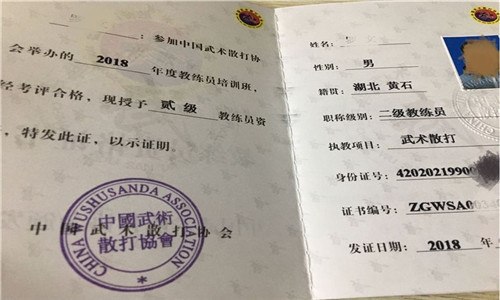 ：参加中国武术散打协
会举办的 2018 年度教练员培训班，
经考评合格，现授予 贰级 教练员资
，特发此证，以示证明。
中国武术散打协会
CHINA WUSHUSANDA ASSOCIATION
中國武術
散打協會
姓名：
性别： 男
籍贯： 湖北 黄石
职称级别： 二级教练员
执教项目： 武术散打
身份证号： 42020219900
证书编号： ZGWSA0
发证日期： 2018 年